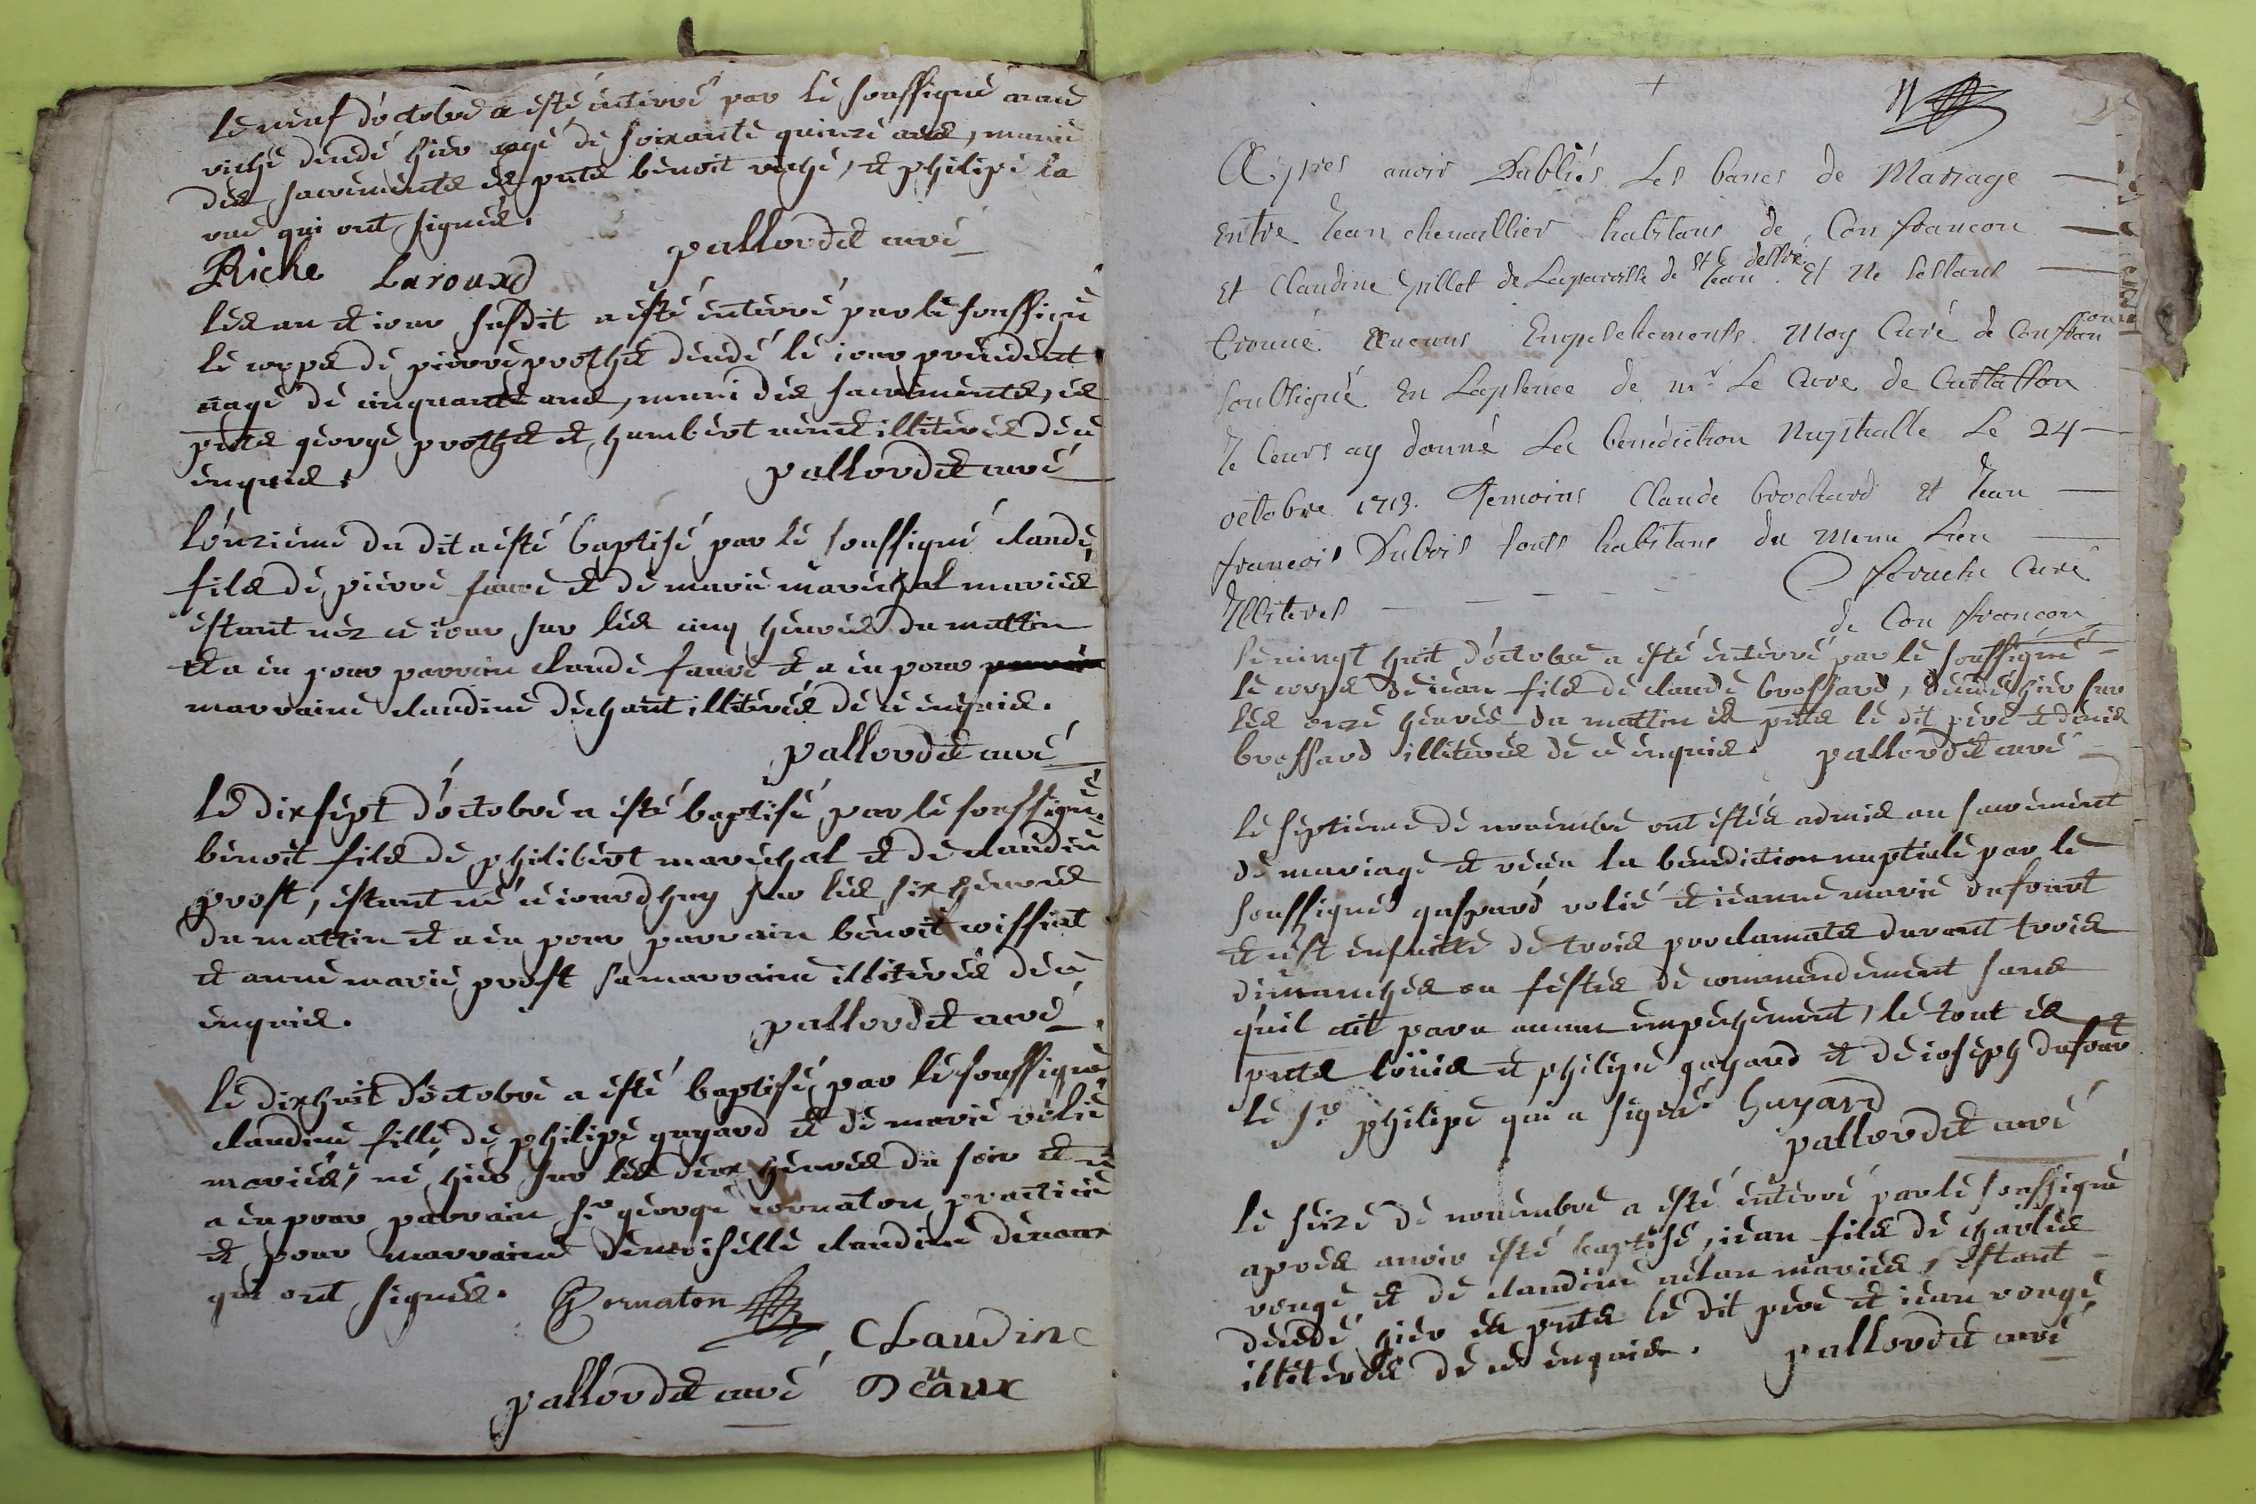 Le neuf d'octobre a esté enterré par le soussigné
riche décédé hier agé de soixante quinze ans, munie
des sacrements és pnts benoit riché, et philipé la
roux qui ont signés.
pallordet curé
Riche Laroux
Les an et iour susdit a esté enterré par le soussigné
le corps de pierre prothet décédé le iour précédent
aagé de cinquante ans, muni des sacrements, és
pnts george prothet et humbert illiterés de ce
enquis.
pallordet curé
L'onziéme du dit a esté baptisé par le soussigné claude,
fils de pierre faure et de marie maréchal mariés
estant néz ce iour sur les cinq heures du mattin
et a eu pour parrain claude faure et a eu pour
marraine claudine dechant illiterés de ce enquis.
pallordet curé
Le dixsept d'octobre a esté baptisé par le soussigné
benoit fils de philibert maréchal et de claudine
prost, estant né ce iourdhuy sur les six heures
du mattin et a eu pour parrain benoit coissiat
et anne marie prost sa marraine illiterés de ce
enquis.
pallordet curé
Le dixhuit d'octobre a esté baptisé par le soussigné
claudine fille de philipe guyard et de marie velie
mariés, né hier sur les deux heures du soir et
a eu pour parrain sr george cornaton practicie
et pour marraine demoiselle claudine deueaux
qui ont signés. G Cornaton
CLaudine
pallordet curé Deuaux
Apres auoir Publiés Les bancs de Mariage
Entre Jean cheuaillier habitans de Confrancon
Et Claudine pillet de Laparoisse de St Jean Et Ne sestant
trouué Aucuns Empeschements Moy Curé de Confrancon
soussigné En Lapsence de mr Le Cure de Curtaffon
Je leurs ay donné La benediction Nuptialle Le 24
octobre 1713. Temoins Claude brochard et Jean
francois Dubois tous habitans du Meme Lieu
Illiteres
Curé
de Confrancon
Le vingt huit d'octobre a esté enterré par le soussigné
le corps de iean fils de claude brossard, décédé hier sur
les onze heures du mattin és pnts le dit pere et denis
brossard illiterés de ce enquis. pallordet curé
Le septieme de nouembre ont estés admis au sacrement
de mariage et receu la benediction nuptiale par le
soussigné gaspard velié et ieanne marie dufourt
et cest ensuitte de trois proclamats durant trois
dimanches ou festes de commendement sans
quil ait paru aucun empeschement, le tout és
pnts loüis et philipe guyard et de ioseph dufour
le sr philipe qui a signé. Guyard
pallordet curé
Le seizé de nouembre a esté enterré par le soussigné
apres auoir esté baptisé, iean fils de charles
ronge et de claudine mariés, estant
décédé hier és pnts le dit pere et iean ronge
illiterés de ce enquis. pallordet curé